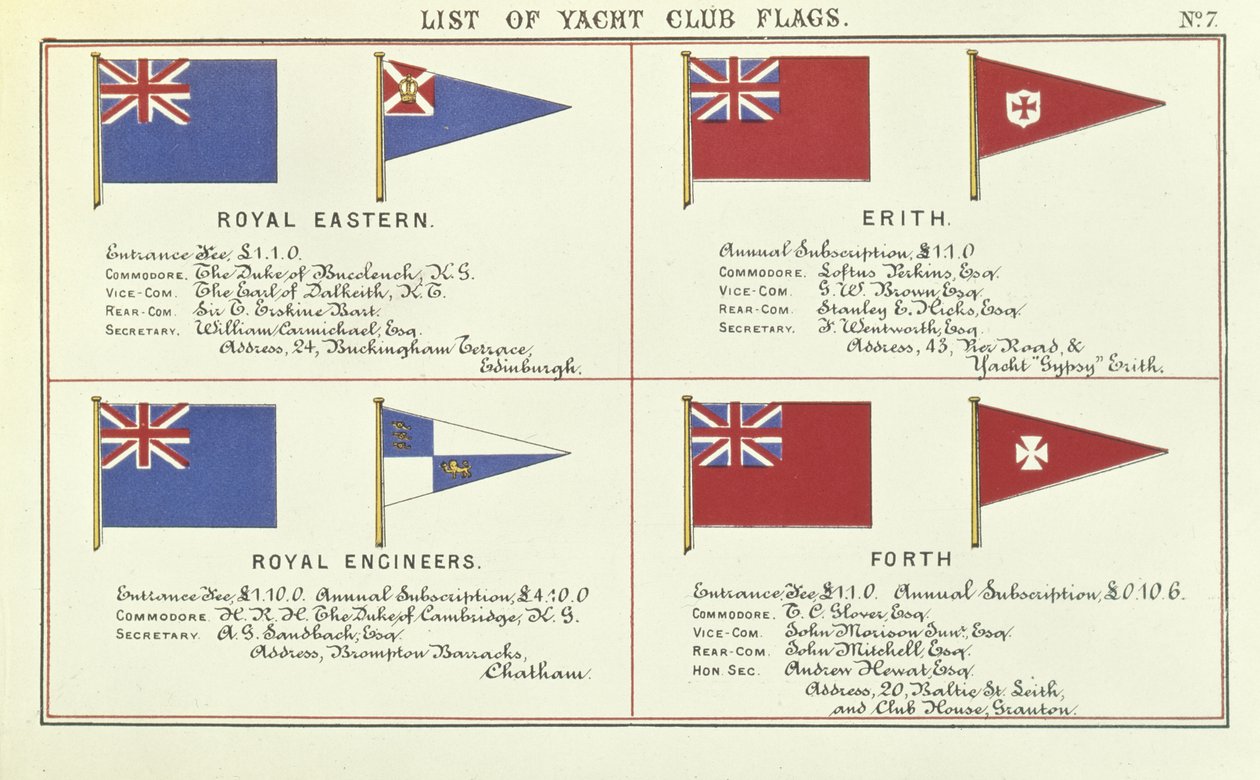 LIST OF YACHT CLUB FLAGS.
No. 7.
ROYAL EASTERN.
Entrance Fee, £1.1.0.
COMMODORE. The Duke of Buccleuch, K.G.
VICE-COM. The Earl of Dalkeith, K.T.
REAR-COM. Sir T. Erskine Bart.
SECRETARY. William Carmichael, Esq.
Address, 24, Buckingham Terrace,
Edinburgh.
ERITH.
Annual Subscription, £1.1.0
COMMODORE. Loftus Perkins, Esq.
VICE-COM. G. W. Brown, Esq.
REAR-COM. Stanley E. Hicks, Esq.
SECRETARY. F. Wentworth, Esq.
Address, 43, Pier Road, &
Yacht "Gypsy" Erith.
ROYAL ENGINEERS.
Entrance Fee, £1.10.0. Annual Subscription, £4.10.0
COMMODORE. H.R.H. The Duke of Cambridge, K.G.
SECRETARY. A. G. Sandbach, Esq.
Address, Brompton Barracks,
Chatham.
FORTH
Entrance Fee, £1.1.0. Annual Subscription, £0.10.6.
COMMODORE. T. C. Glover, Esq.
VICE-COM. John Morison Junr., Esq.
REAR-COM. John Mitchell, Esq.
HON. SEC. Andrew Hewat, Esq.
Address, 20, Baltic St. Leith,
and Club House, Granton.